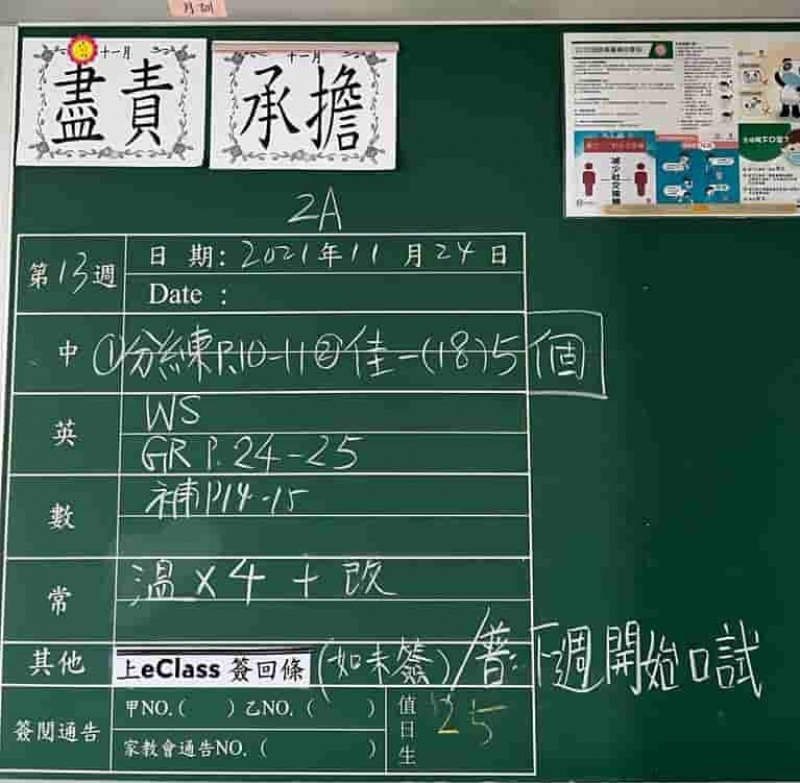 月訓
十一月
盡責
十一月
承擔
減少社交接觸
2A
第13週
日 期: 2021年11月24日
Date :
中 ①分練P.10-11②佳-(18)5個
英 WS
GR P.24-25
數 補P14-15
常 溫x4 + 改
其他 上eClass 簽回條 (如未簽)/普:下週開始口試
簽閱通告 甲NO.( ) 乙NO.( )
家教會通告NO.( )
值日生 25